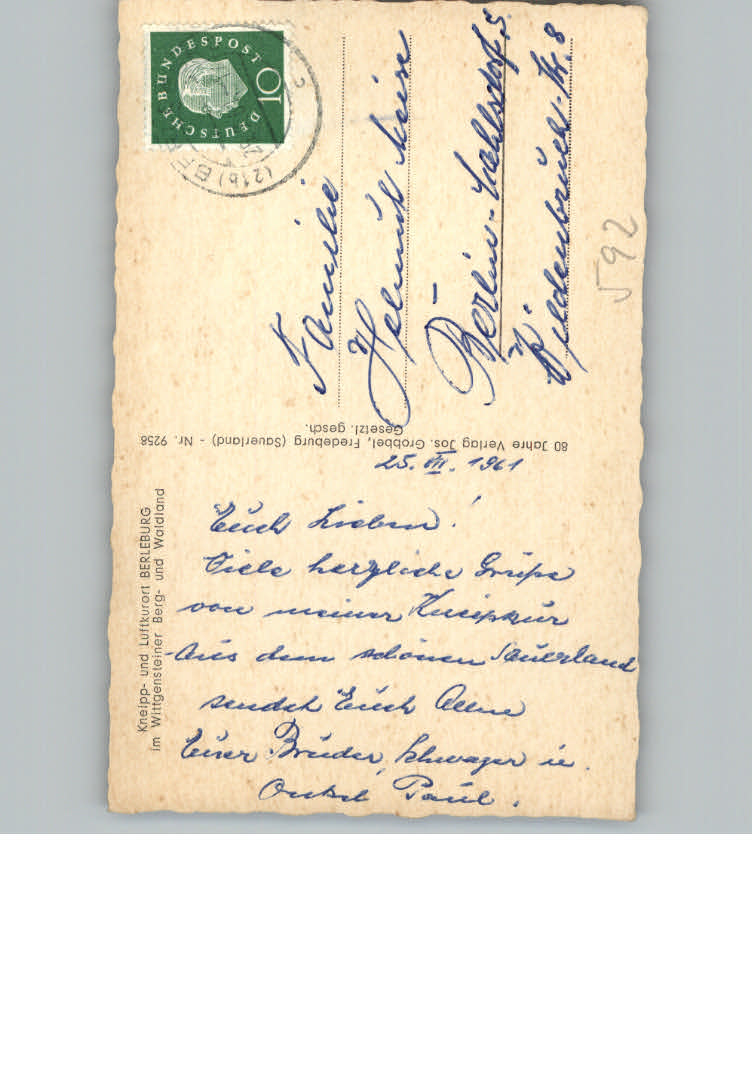 Kneipp- und Luftkurort BERLEBURG
im Wittgensteiner Berg- und Waldland
80 Jahre Verlag Jos. Grobbel, Fredeburg (Sauerland) - Nr. 9258
Gesetzl. gesch.
DEUTSCHE BUNDESPOST
10
(21b) BER
Familie
Helmut
Berlin-Mahlsdorf S.
Hildenbrück. Str. 8
592
25. VII. 1961
Euch Lieben!
Viele herzliche Grüße
von meiner Kneipkur
Aus dem schönen Sauerland
sendet Euch Allen
Euer Bruder, Schwager u.
Onkel Paul.